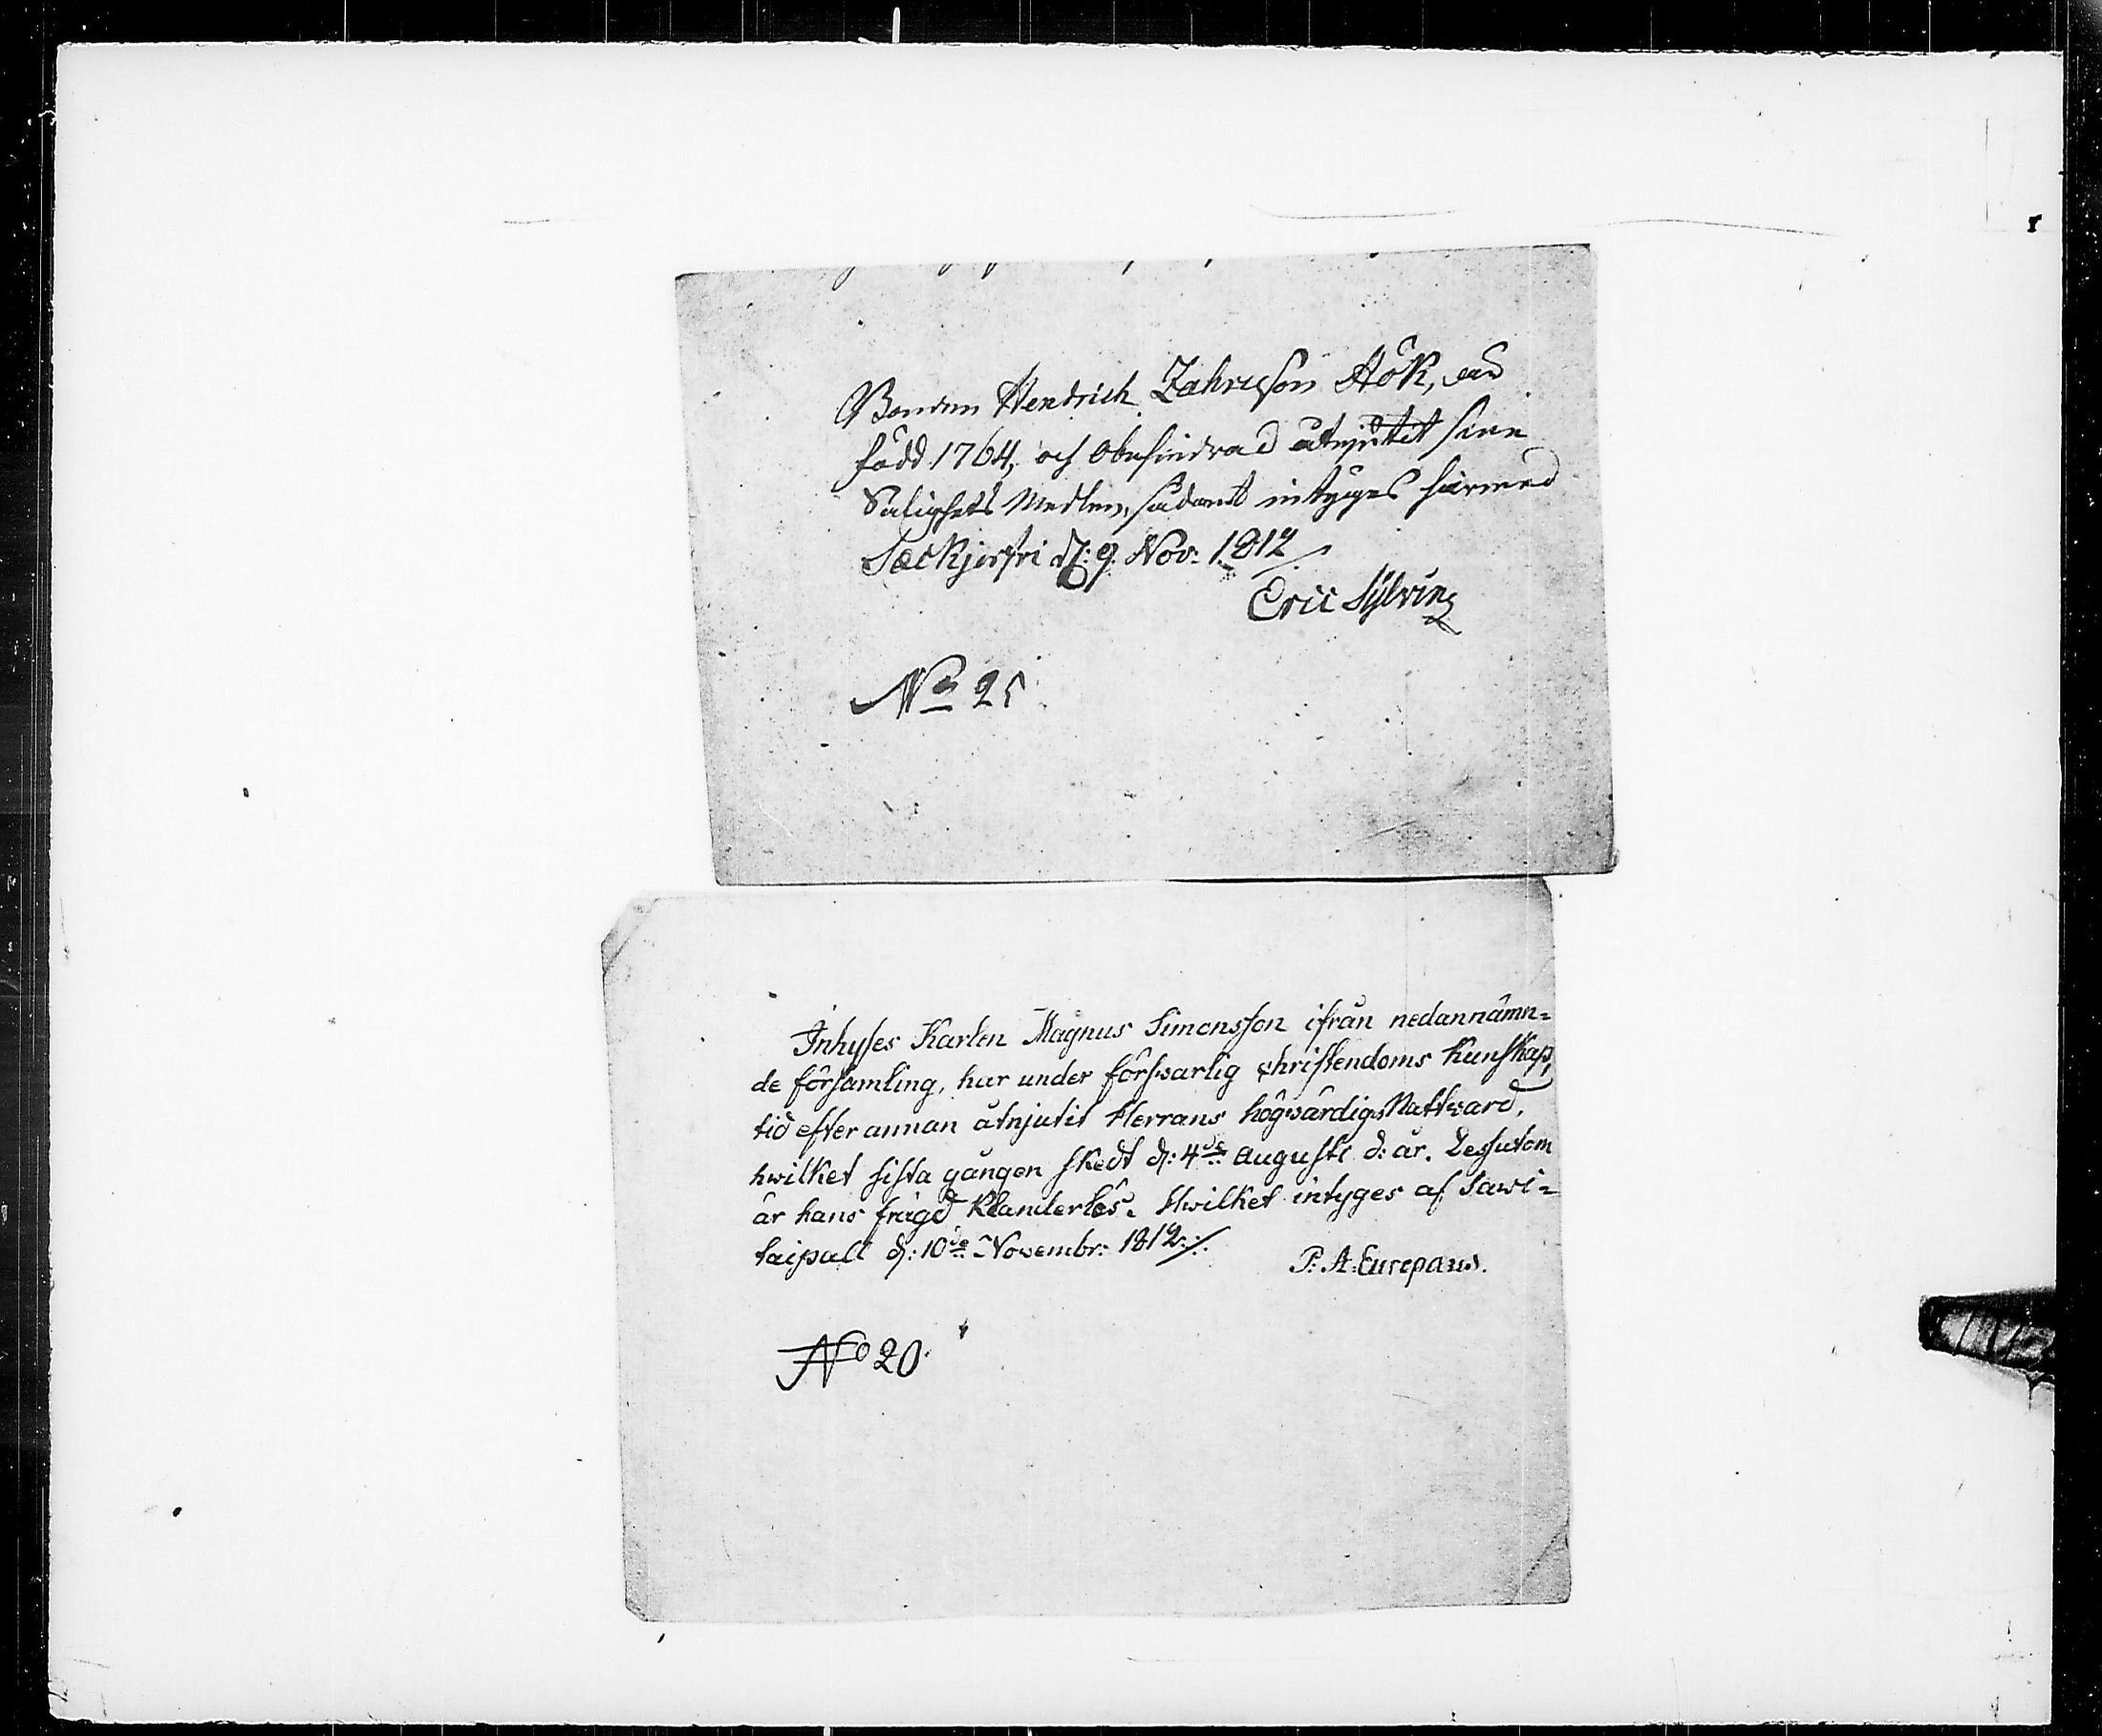 Bonden Hendrich Zahrisson Hök, är
född 1764, och obehindrad åtnjutit sine
Salighets Medlen, sådant intyges härmed
Säckjerfvi d: 9. Nov: 1812
Eric Sylvin
No 25
Inhyses Karlen Magnus Simonsson ifrån nedannämn=
de församling, har under försvarlig christendoms kunskap,
tid efter annan åtnjutit Herrans högwärdiga Nattward,
hwilket sista gången skedt d: 4de Augusti d: år. Dessutom
är hans frägd klanderlös. Hwilket intyges af Sawi=
taipall d: 10de Novembr: 1812./.
P: A: Europæus.
No 20